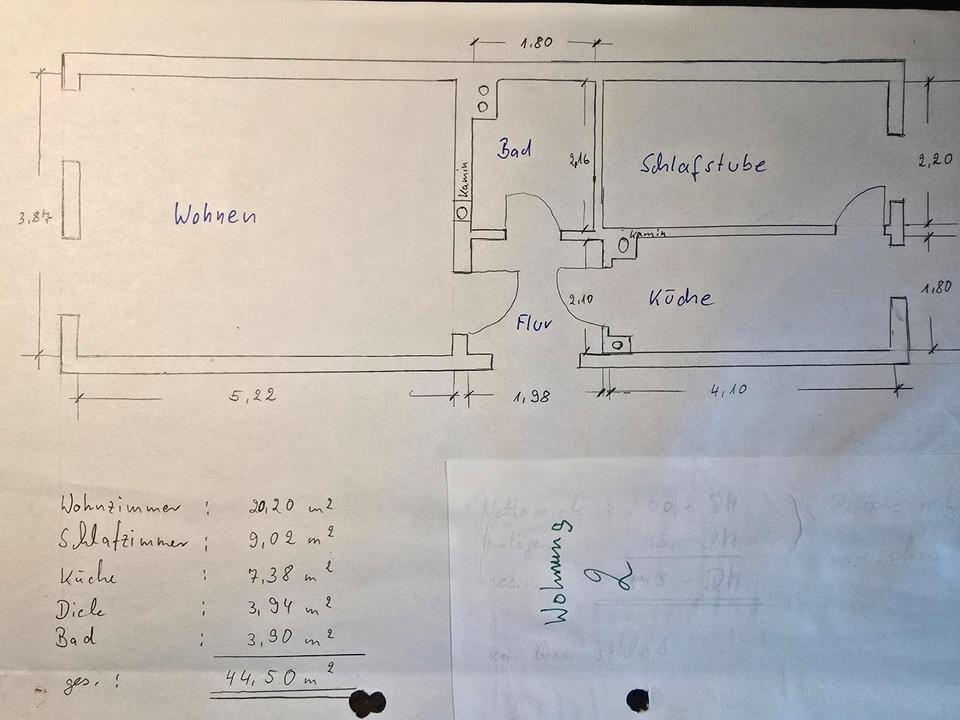 1.80
Bad
2,16
Schlafstube
2,20
Kamin
3,87
Wohnen
Kamin
Küche
1,80
2,10
Flur
5,22
1,98
4,10
Wohnzimmer : 20,20 m²
Schlafzimmer : 9,02 m²
Küche : 7,38 m²
Diele : 3,94 m²
Bad : 3,90 m²
ges. : 44,50 m²
Wohnung
2